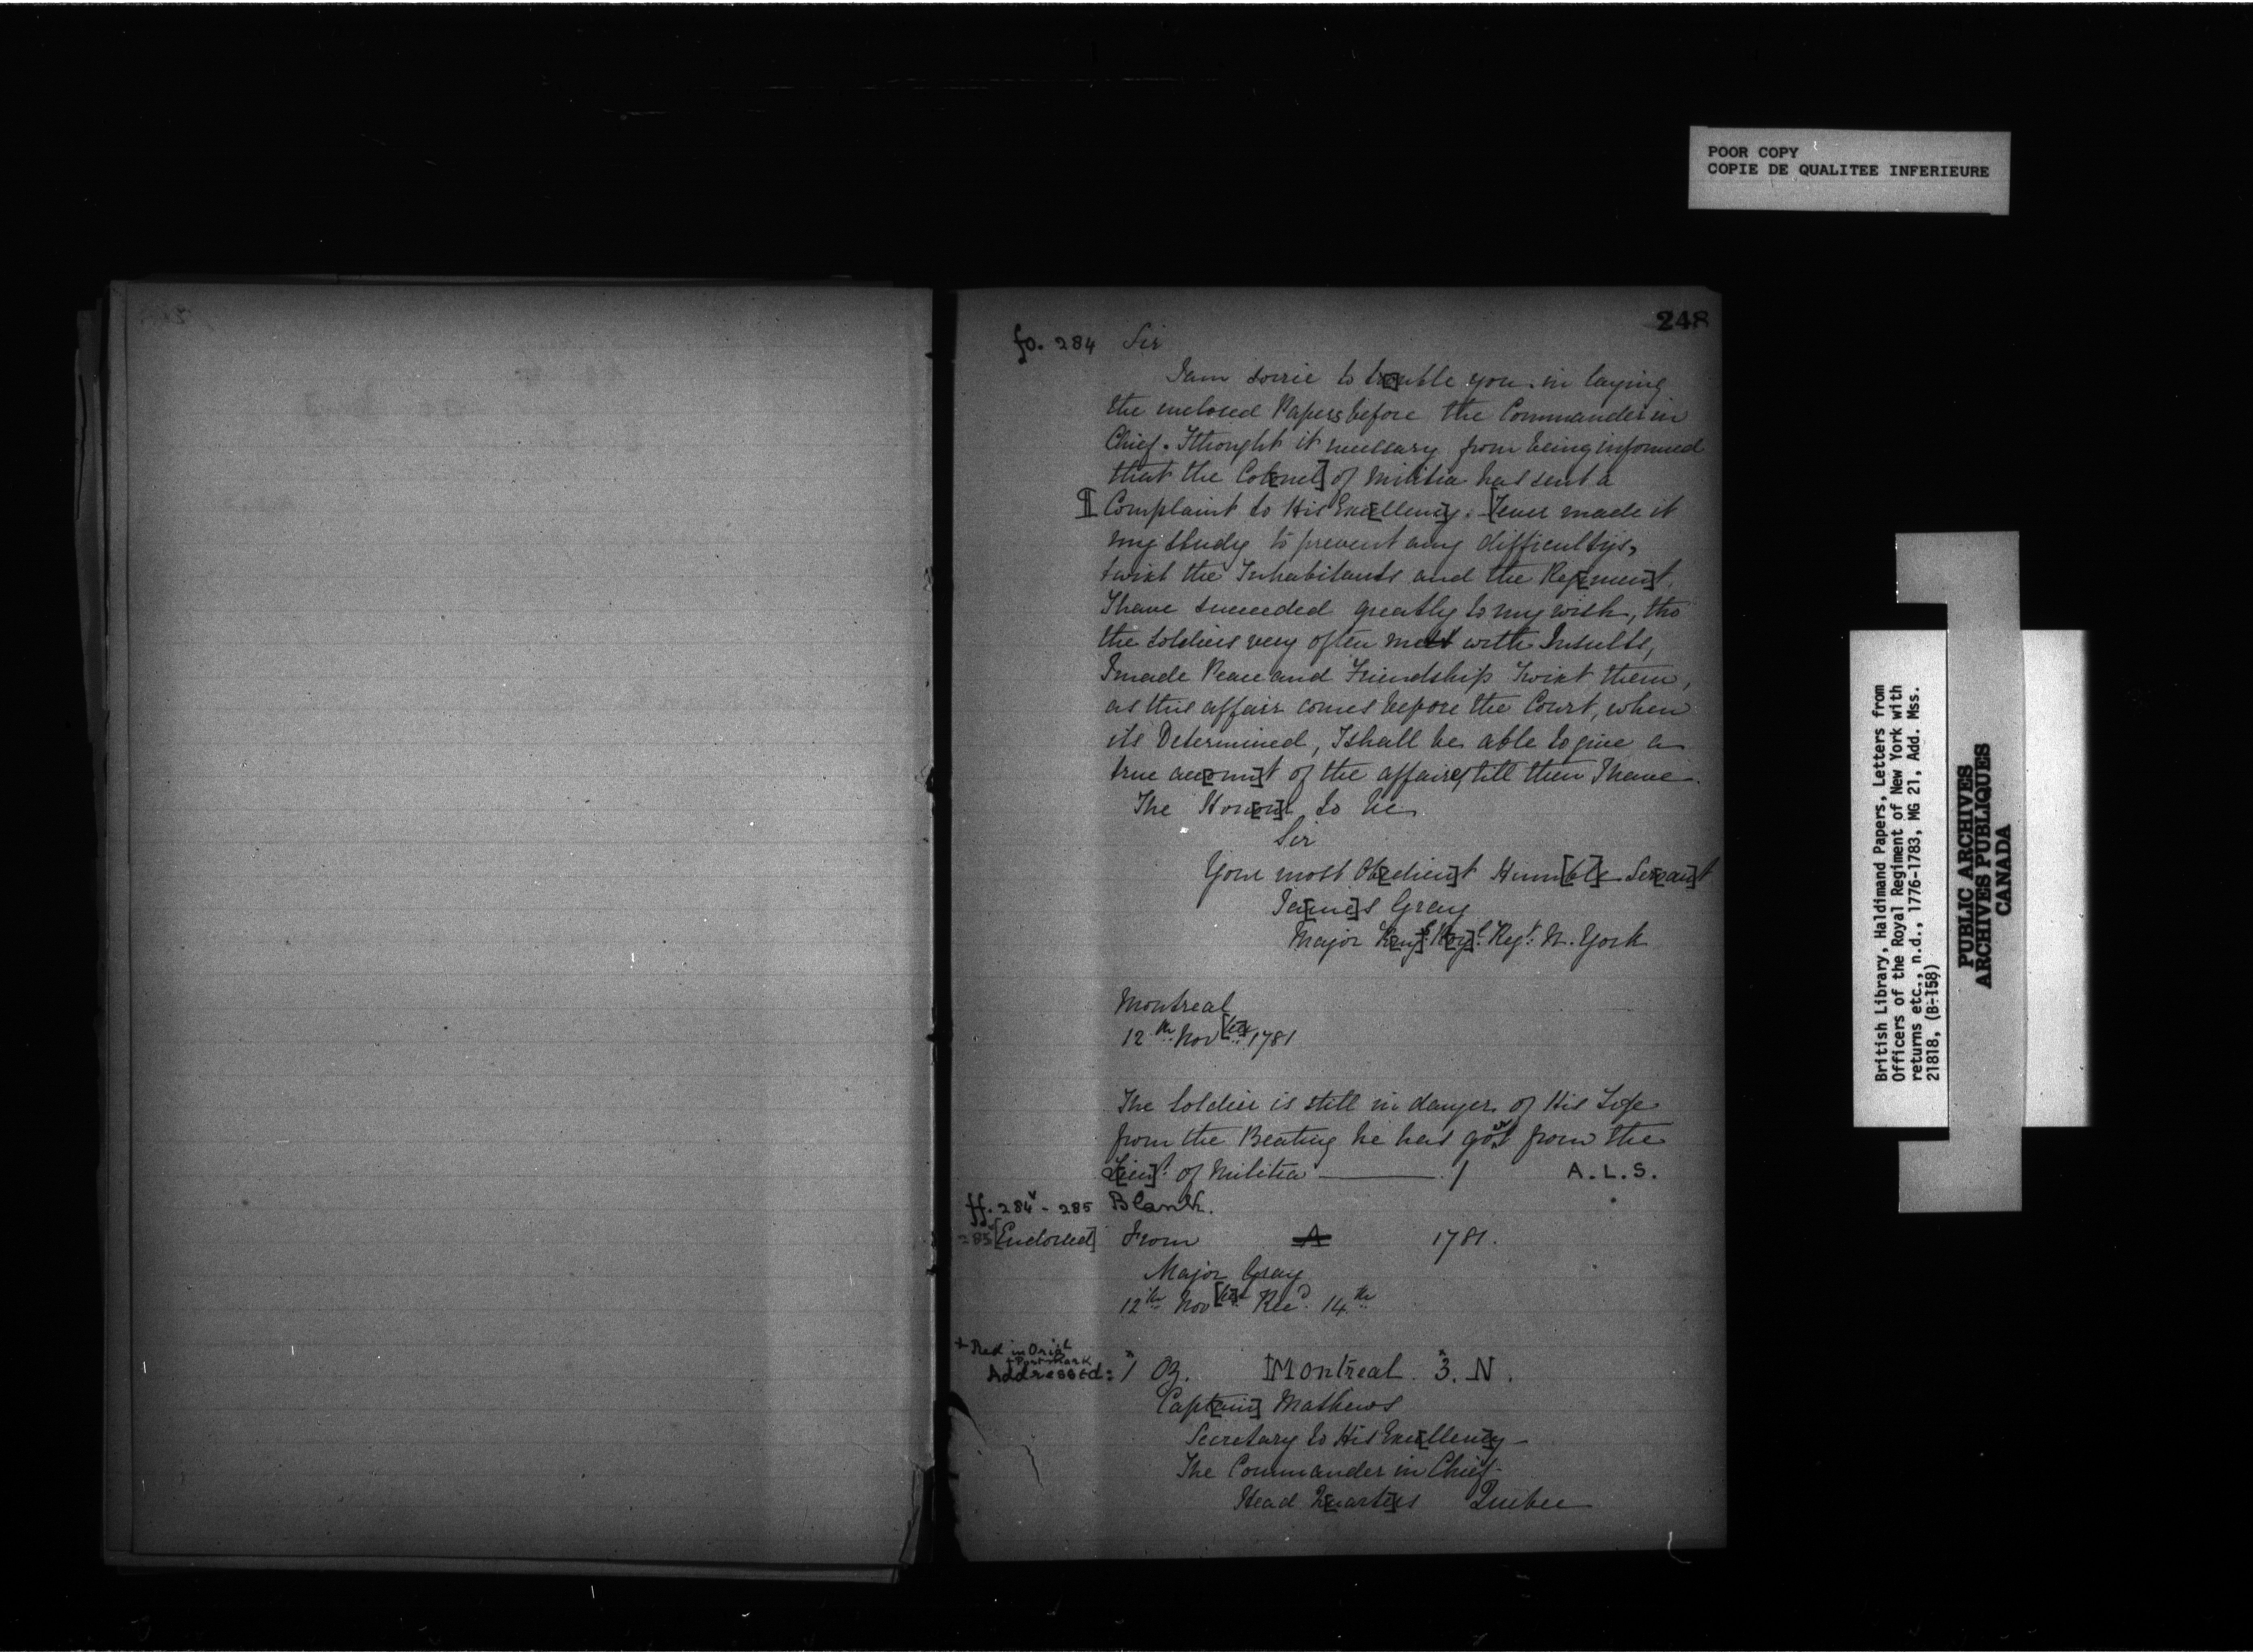 POOR COPY
COPIE DE QUALITEE INFERIEURE
248
fo. 284 Sir
I am sorrie to tr[o]uble you in laying
the enclosed Papers before the Commander in
Chief. I thought it necessary from being informed
that the Col[onel] of Militia has sent a
Complaint to His Exce[llency]. [I ever made it
my study to prevent any difficultys,
twixt the Inhabitants and the Reg[imen]t.
I have succeeded greatly to my wish, tho
the soldiers very often with Insults,
I made Peace and Friendship Twixt them,
as this affair comes before the Court, when
its Determined, I shall be able to give a
true acc[oun]t of the affair till then I have
The Hon[ou]r to be
Sir
Your most Ob[edien]t Hum[bl]e Se[rvan]t
Ja[me]s Gray
Major K[ing]s R[oy]l. Regt. N. York
Montreal
12th Nov[be]r 1781
The Soldier is still in danger of His Life
from the Beating he has got from the
L[ieu]t. of Militia ——— /
A.L.S.
ff. 284v - 285 Blank.
285v [Endorsed] From A 1781.
Major Gray
12th Nov[be]r Recd. 14th
+ Red in Orig[l]
+ Postmark
Addressed: 1 Oz. Montreal. 3. N.
Capt[ain] Mathews
Secretary to His Exce[llenc]y
The Commander in Chief
Head Q[uarte]rs Quebec
British Library, Haldimand Papers, Letters from
Officers of the Royal Regiment of New York with
returns etc., n.d., 1776-1783, MG 21, Add. Mss.
21818, (B-158)
PUBLIC ARCHIVES
ARCHIVES PUBLIQUES
CANADA